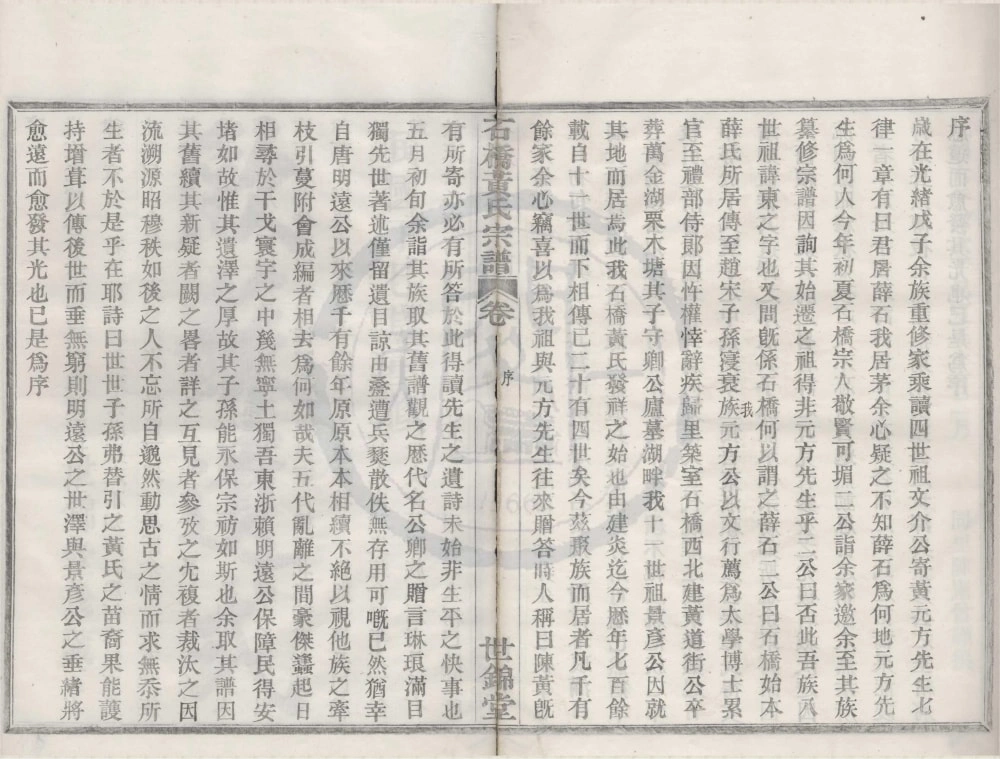 序
歲在光緒戊子余族重修家乘讀四世祖文介公寄黃元方先生七
律一章有曰君居薛石我居茅余心疑之不知薛石爲何地元方先
生爲何人今年初夏石橋宗人敬賢可堳二公詣余家邀余至其族
纂修宗譜因詢其始遷之祖得非元方先生乎二公曰否此吾族八
世祖諱東之字也又問旣係石橋何以謂之薛石二公曰石橋始本
薛氏所居傳至趙宋子孫寖衰我族元方公以文行薦爲太學博士累
官至禮部侍郎因忤權悻辭疾歸里築室石橋西北建黃道街公卒
葬萬金湖栗木塘其子守卿公廬墓湖畔我十一世祖景彥公因就
其地而居焉此我石橋黃氏發祥之始也由建炎迄今歷年七百餘
載自十一世而下相傳已二十有四世矣今茲聚族而居者凡千有
餘家余心竊喜以爲我祖與元方先生往來贈答時人稱曰陳黃旣
石橋黃氏宗譜 卷 序 世錦堂
有所寄亦必有所答於此得讀先生之遺詩未始非生平之快事也
五月初旬余詣其族取其舊譜觀之歷代名公卿之贈言琳琅滿目
獨先世著述僅留遺目諒由疊遭兵燹散佚無存用可嘅已然猶幸
自唐明遠公以來歷千有餘年原原本本相續不絕以視他族之牽
枝引蔓附會成編者相去爲何如哉夫五代亂離之間豪傑蠭起日
相尋於干戈寰宇之中幾無寧土獨吾東浙賴明遠公保障民得安
堵如故惟其遺澤之厚故其子孫能永保宗祊如斯也余取其譜因
其舊續其新疑者闕之畧者詳之互見者參攷之宂複者裁汰之因
流溯源昭穆秩如後之人不忘所自邈然動思古之情而求無忝所
生者不於是乎在耶詩曰世世子孫弗替引之黃氏之苗裔果能護
持增葺以傳後世而垂無窮則明遠公之世澤與景彥公之垂緒將
愈遠而愈發其光也已是爲序